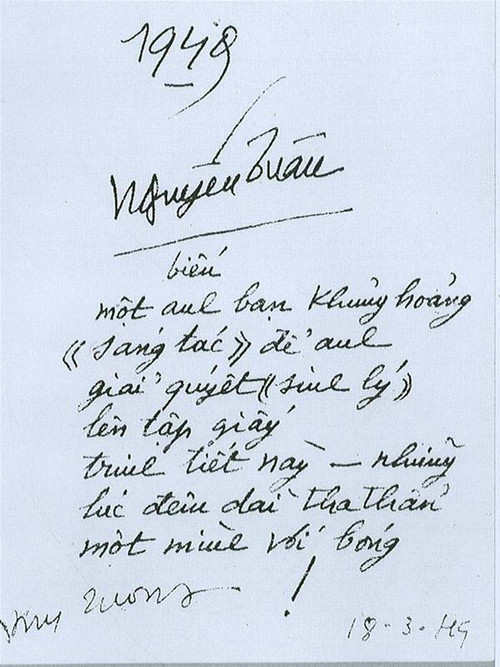 1948
Nguyễn Tuân
biếu
một anh bạn khủng hoảng
« sáng tác » để anh
giải quyết « sinh lý »
lên tập giấy
trinh tiết này — những
lúc đêm dài tha thẩn
một mình với bóng
!
18 - 3 - 49